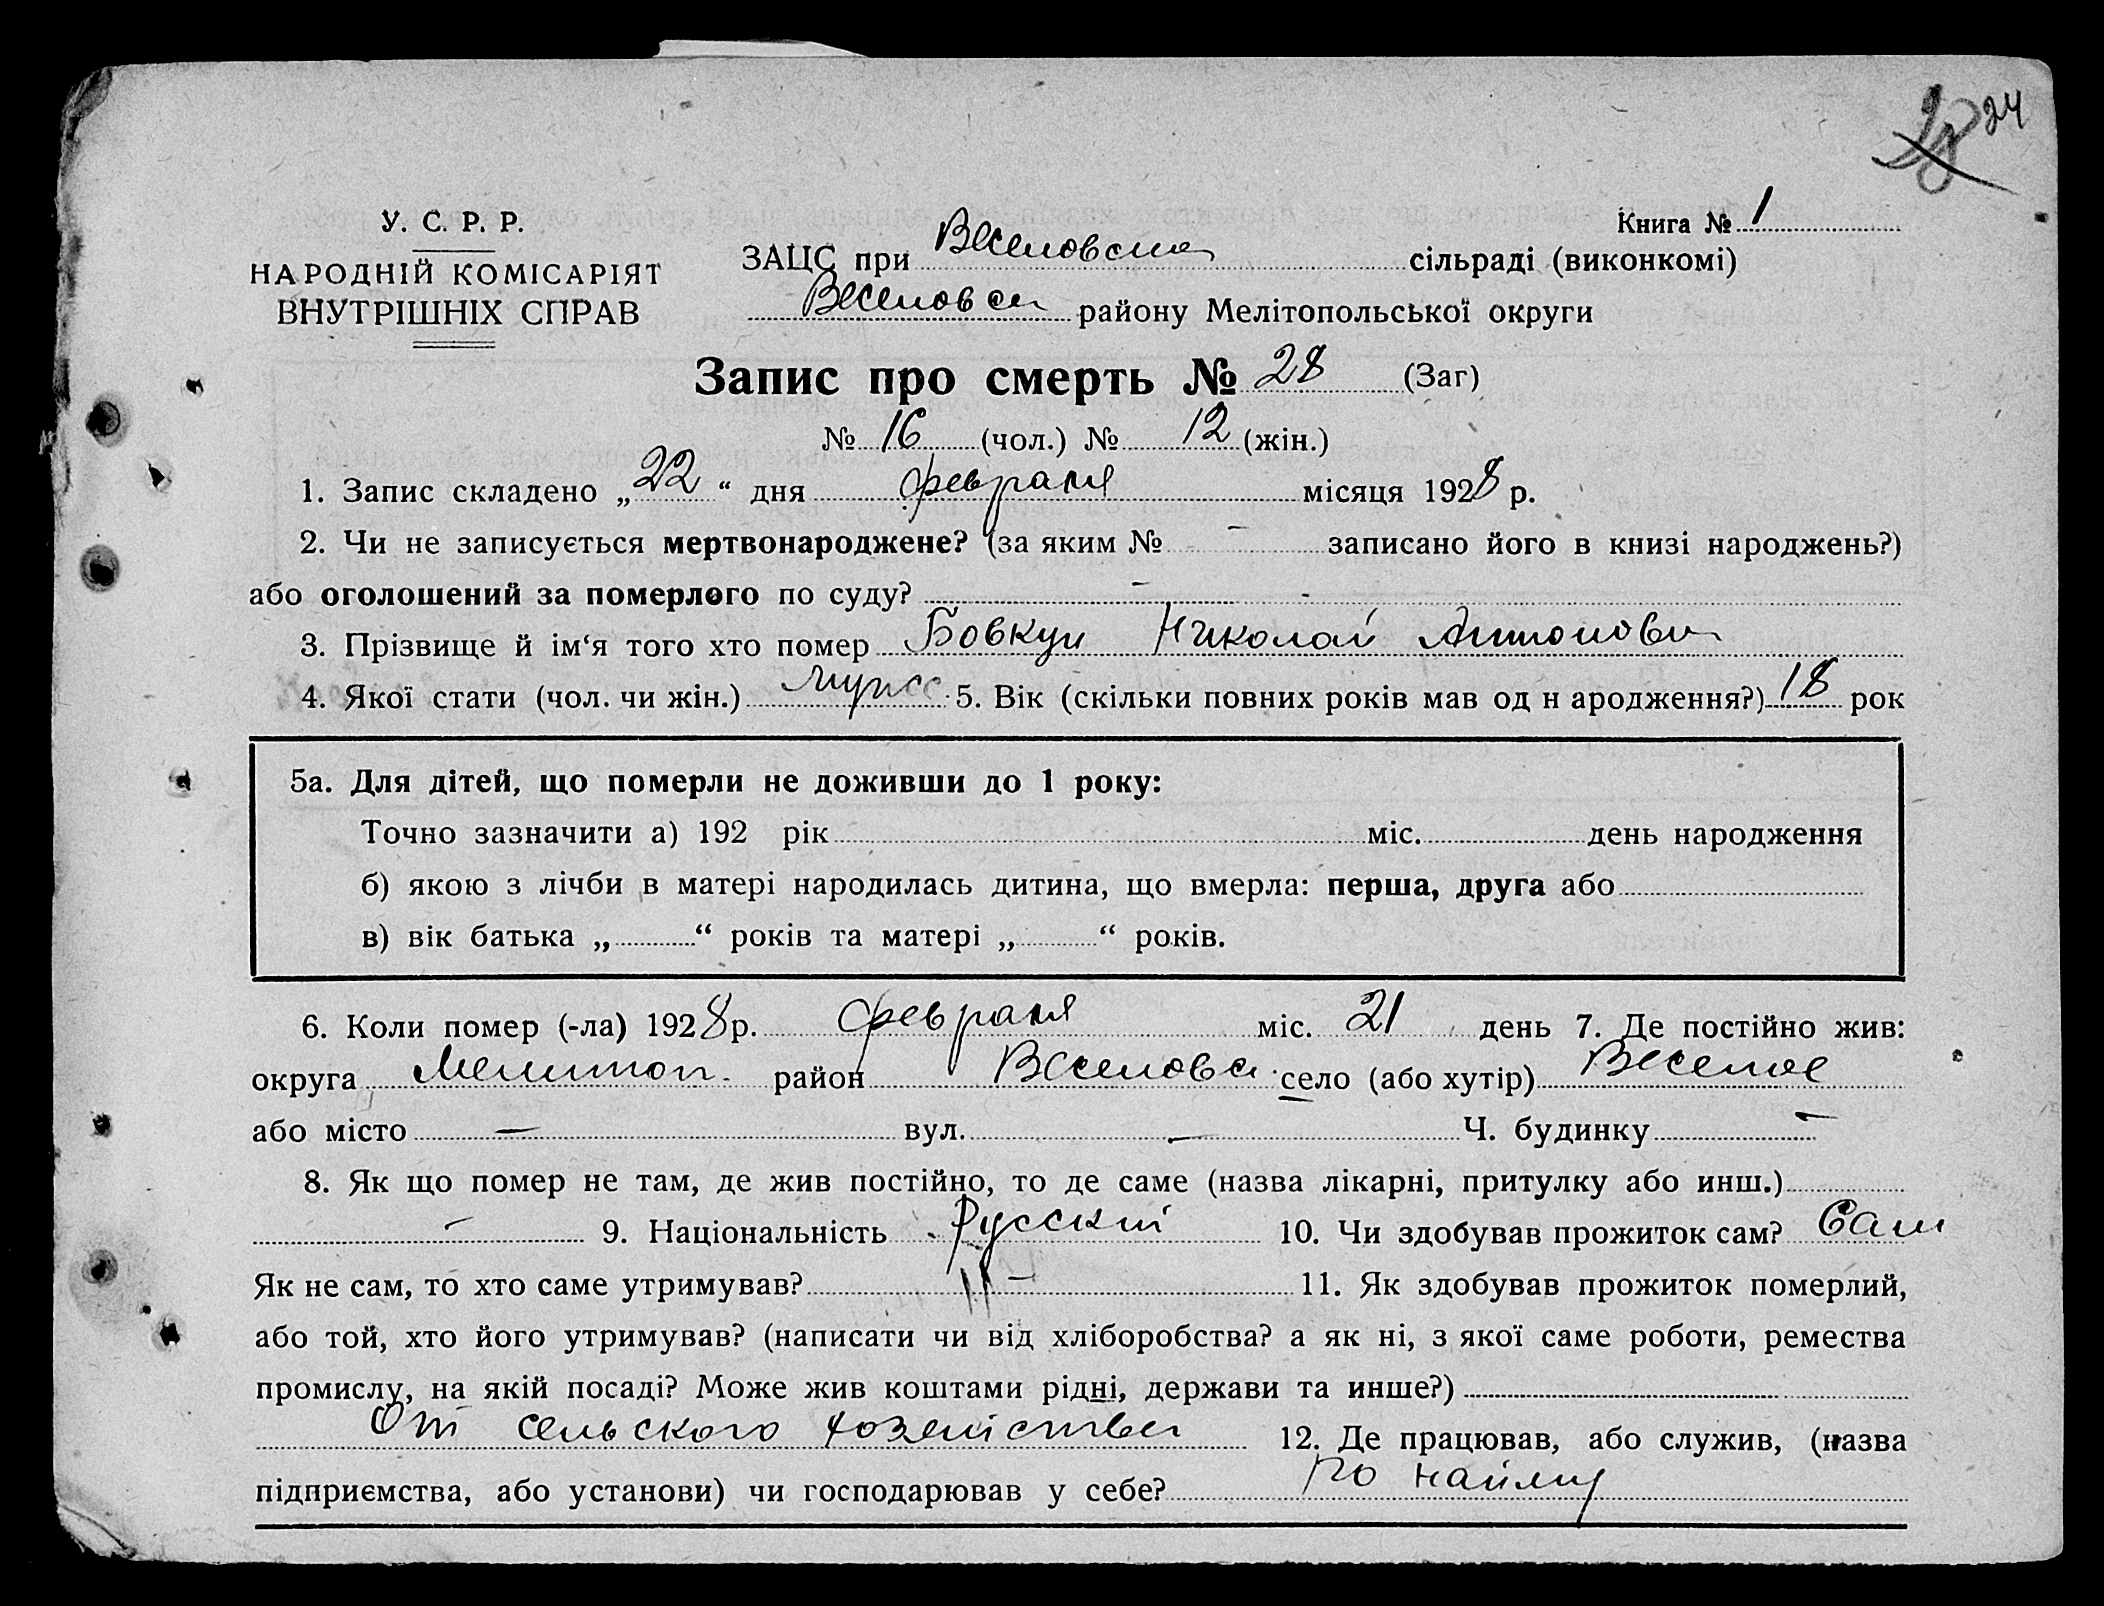 28 24
У. С. Р. Р.
НАРОДНІЙ КОМІСАРІЯТ
ВНУТРІШНІХ СПРАВ
Книга № 1
ЗАЦС при Веселовском сільраді (виконкомі)
Веселовск району Мелітопольської округи
Запис про смерть № 28 (Заг)
№ 16 (чол.) № 12 (жін.)
1. Запис складено „22“ дня февраля місяця 1928 р.
2. Чи не записується мертвонароджене? (за яким № - записано його в книзі народжень?)
або оголошений за померлого по суду? -
3. Прізвище й ім‘я того хто помер Бовкун Николай Антонович
4. Якої стати (чол. чи жін.) мужс 5. Вік (скільки повних років мав од н ародження?) 18 рок
5а. Для дітей, що померли не доживши до 1 року:
Точно зазначити а) 192 рік міс. день народження
б) якою з лічби в матері народилась дитина, що вмерла: перша, друга або
в) вік батька „ “ років та матері „ “ років.
6. Коли помер (-ла) 1928 р. февраля міс. 21 день 7. Де постійно жив:
округа Мелитоп. район Веселовск село (або хутір) Веселое
або місто — вул. — Ч. будинку —
8. Як що помер не там, де жив постійно, то де саме (назва лікарні, притулку або инш.)
— 9. Національність Русский 10. Чи здобував прожиток сам? Сам
Як не сам, то хто саме утримував? — 11. Як здобував прожиток померлий,
або той, хто його утримував? (написати чи від хліборобства? а як ні, з якої саме роботи, ремества
промислу, на якій посаді? Може жив коштами рідні, держави та инше?)
От сельского хозяйства 12. Де працював, або служив, (назва
підприємства, або установи) чи господарював у себе? по найму